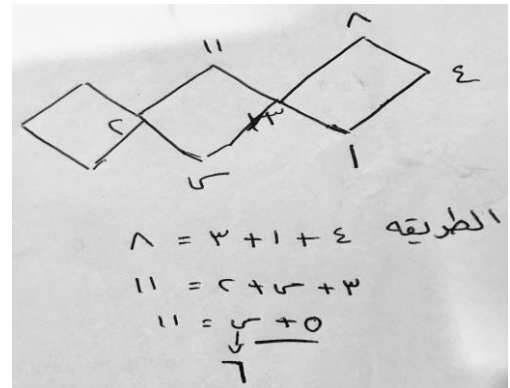 ٨
١١
٤
٣ ٢
١
س
الطريقه ٤ + ١ + ٣ = ٨
٣ + س + ٢ = ١١
٥ + س = ١١
٦